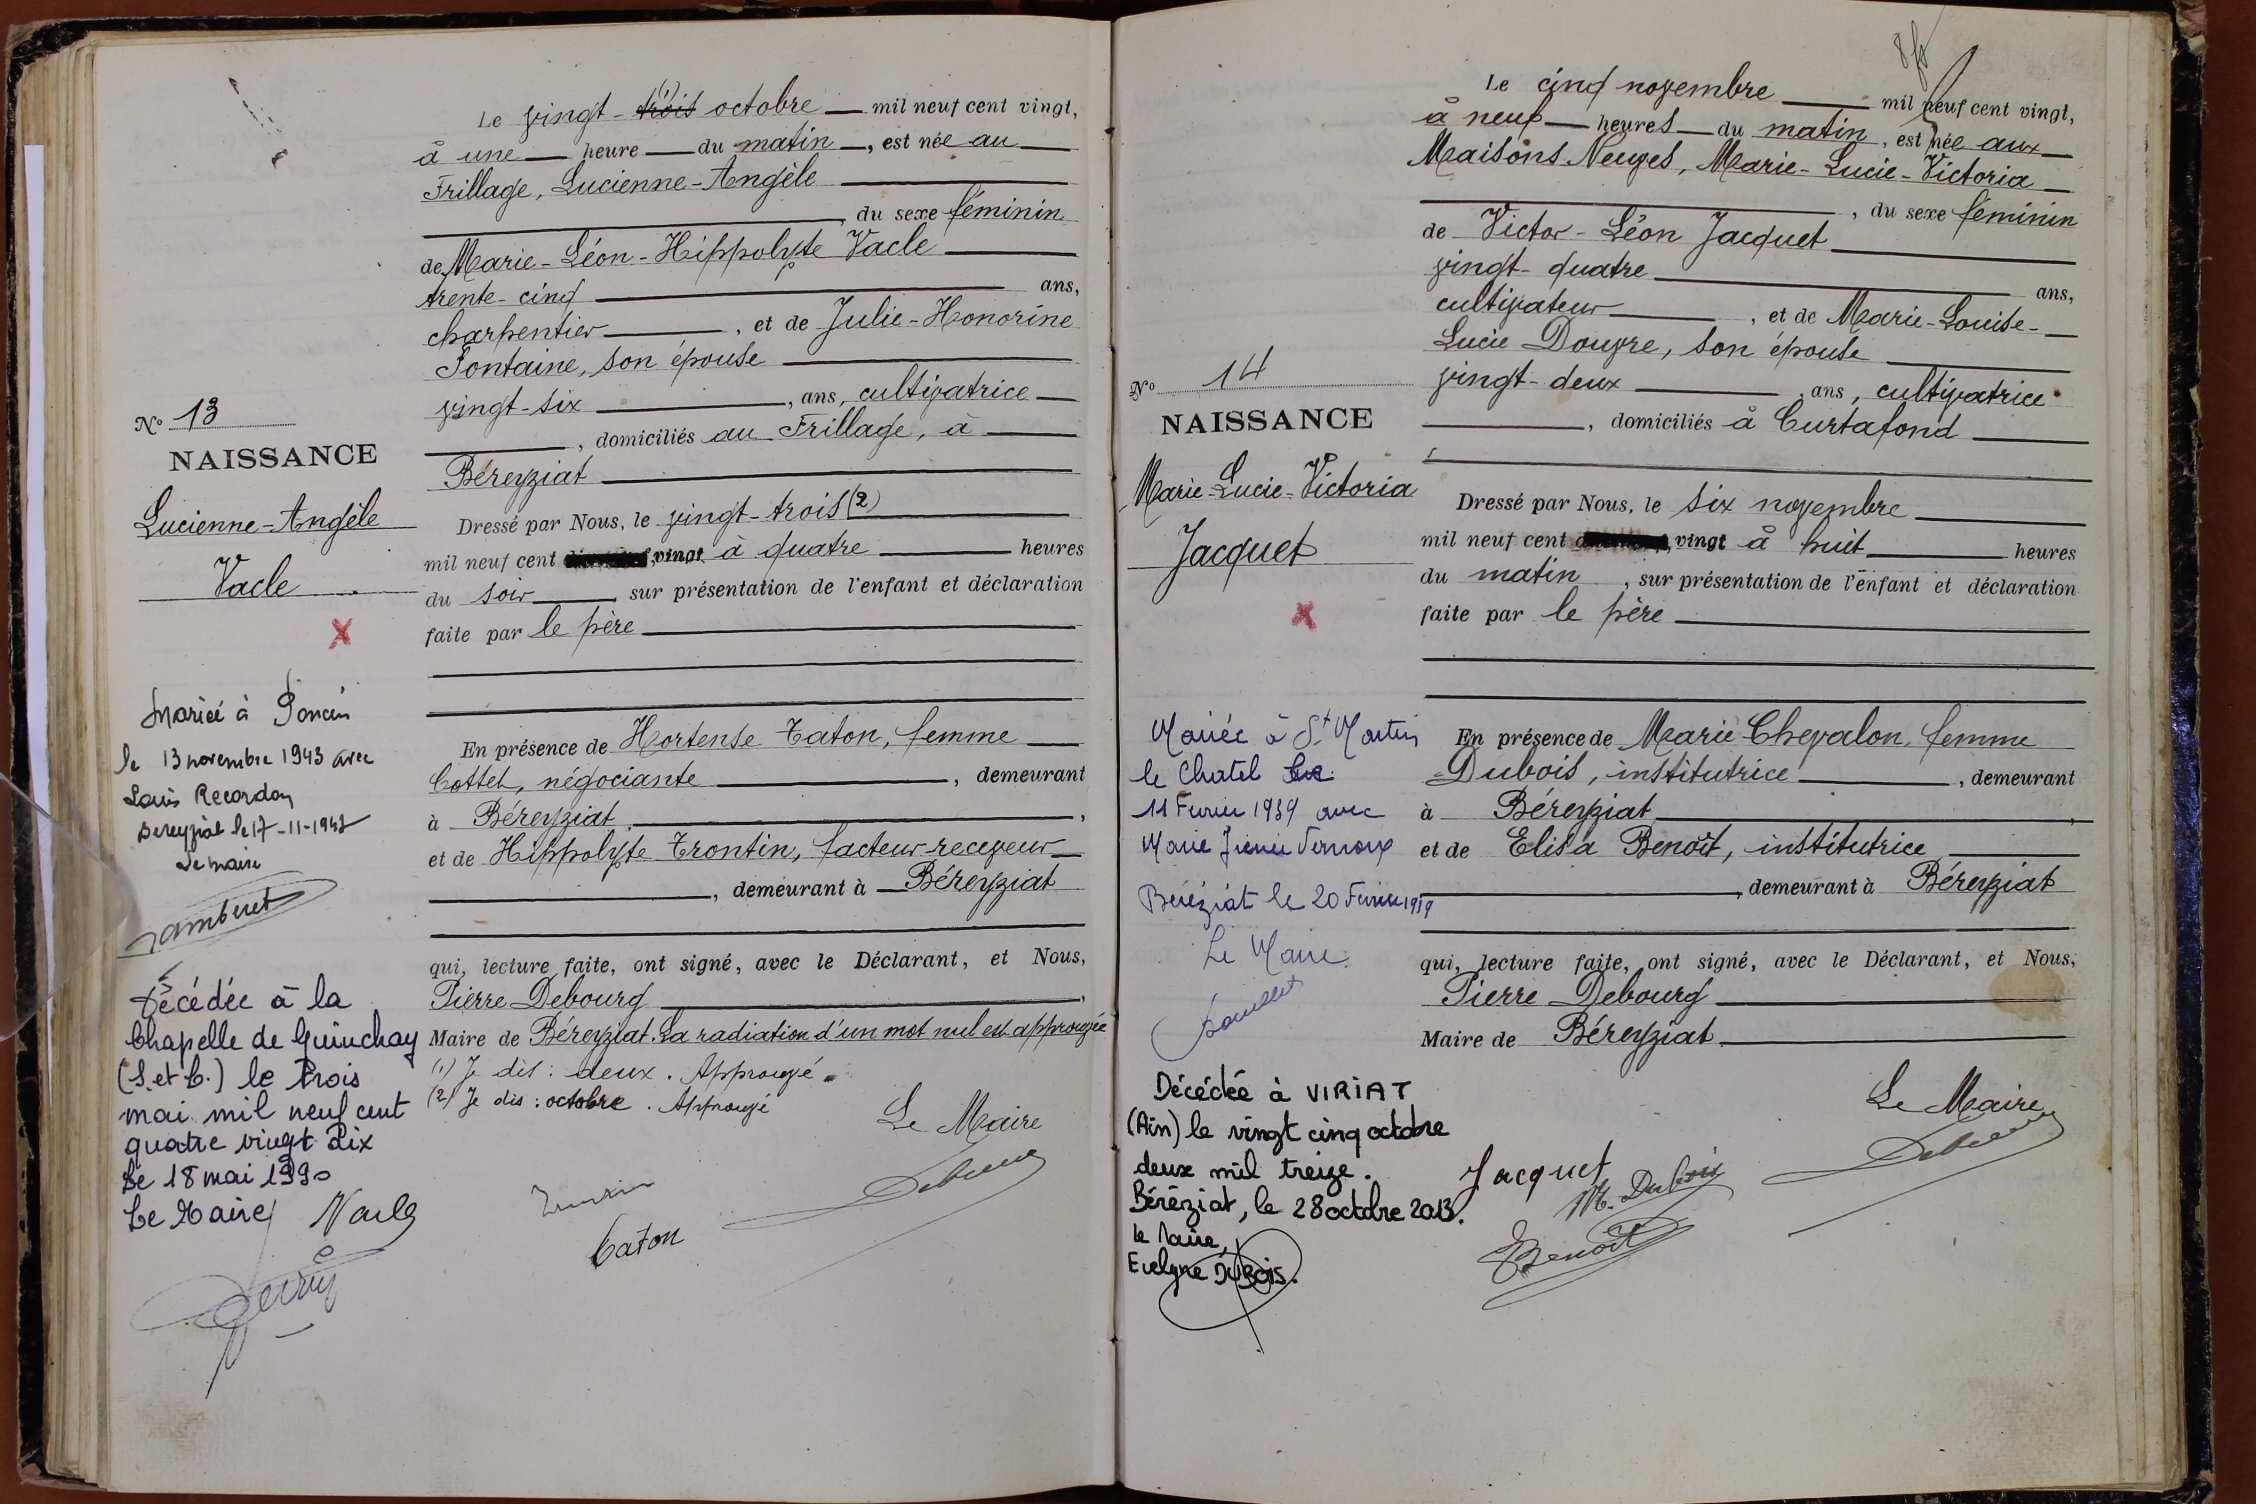 Le vingt-trois (1) octobre mil neuf cent vingt,
à une heure du matin, est née au
Frillage, Lucienne-Angèle
, du sexe féminin
de Marie-Léon-Hippolyte Vacle
trente-cinq ans,
charpentier, et de Julie-Honorine
Fontaine, son épouse
vingt-six, ans, cultivatrice
, domiciliés au Frillage, à
Béreyziat
Dressé par Nous, le vingt-trois (2)
mil neuf cent vingt à quatre heures
du soir, sur présentation de l'enfant et déclaration
faite par le père
En présence de Hortense Caton, femme
Cottet, négociante, demeurant
à Béreyziat,
et de Hippolyte Trontin, facteur-receveur
, demeurant à Béreyziat
qui, lecture faite, ont signé, avec le Déclarant, et Nous,
Pierre Debourg,
Maire de Béreyziat. La radiation d'un mot nul est approuvée
(1) Je dis : deux. Approuvé.
(2) Je dis : octobre. Approuvé
Le Maire
Caton
No 13
NAISSANCE
Lucienne-Angèle
Vacle
X
Mariée à Poncin
le 13 novembre 1943 avec
Louis Recordon
Bereyziat le 17-11-1943
Le maire
Décédée à la
Chapelle de Guinchay
(S. et L.) le trois
mai mil neuf cent
quatre vingt dix
Le 18 mai 1990
Le Maire
Vacle
8f
Le cinq novembre mil neuf cent vingt,
à neuf heures du matin, est née aux
Maisons-Neuves, Marie-Lucie-Victoria
, du sexe féminin
de Victor-Léon Jacquet
vingt-quatre ans,
cultivateur, et de Marie-Louise-
Lucie Douvre, son épouse
vingt-deux, ans, cultivatrice
, domiciliés à Curtafond
Dressé par Nous, le six novembre
mil neuf cent vingt à huit heures
du matin, sur présentation de l'enfant et déclaration
faite par le père
En présence de Marie Chevalon, femme
Dubois, institutrice, demeurant
à Béreyziat,
et de Elisa Benoît, institutrice
, demeurant à Béreyziat
qui, lecture faite, ont signé, avec le Déclarant, et Nous,
Pierre Debourg
Maire de Béreyziat.
Le Maire
Jacquet
M. Dubois
E Benoît
No 14
NAISSANCE
Marie-Lucie-Victoria
Jacquet
X
Mariée à St Martin
le Chatel le
11 Février 1939 avec
Marie
Béréziat le 20 Février 1939
Le Maire
Décédée à VIRIAT
(Ain) le vingt cinq octobre
deux mil treize.
Béréziat, le 28 octobre 2013.
Le Maire,
Evelyne DUBOIS.